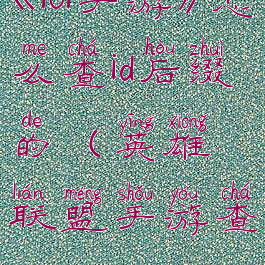 《lol手游》怎
me chá hòu zhuì
么查id后缀
de yīng xióng
的（英雄
lián méng shǒu yóu chá
联盟手游查